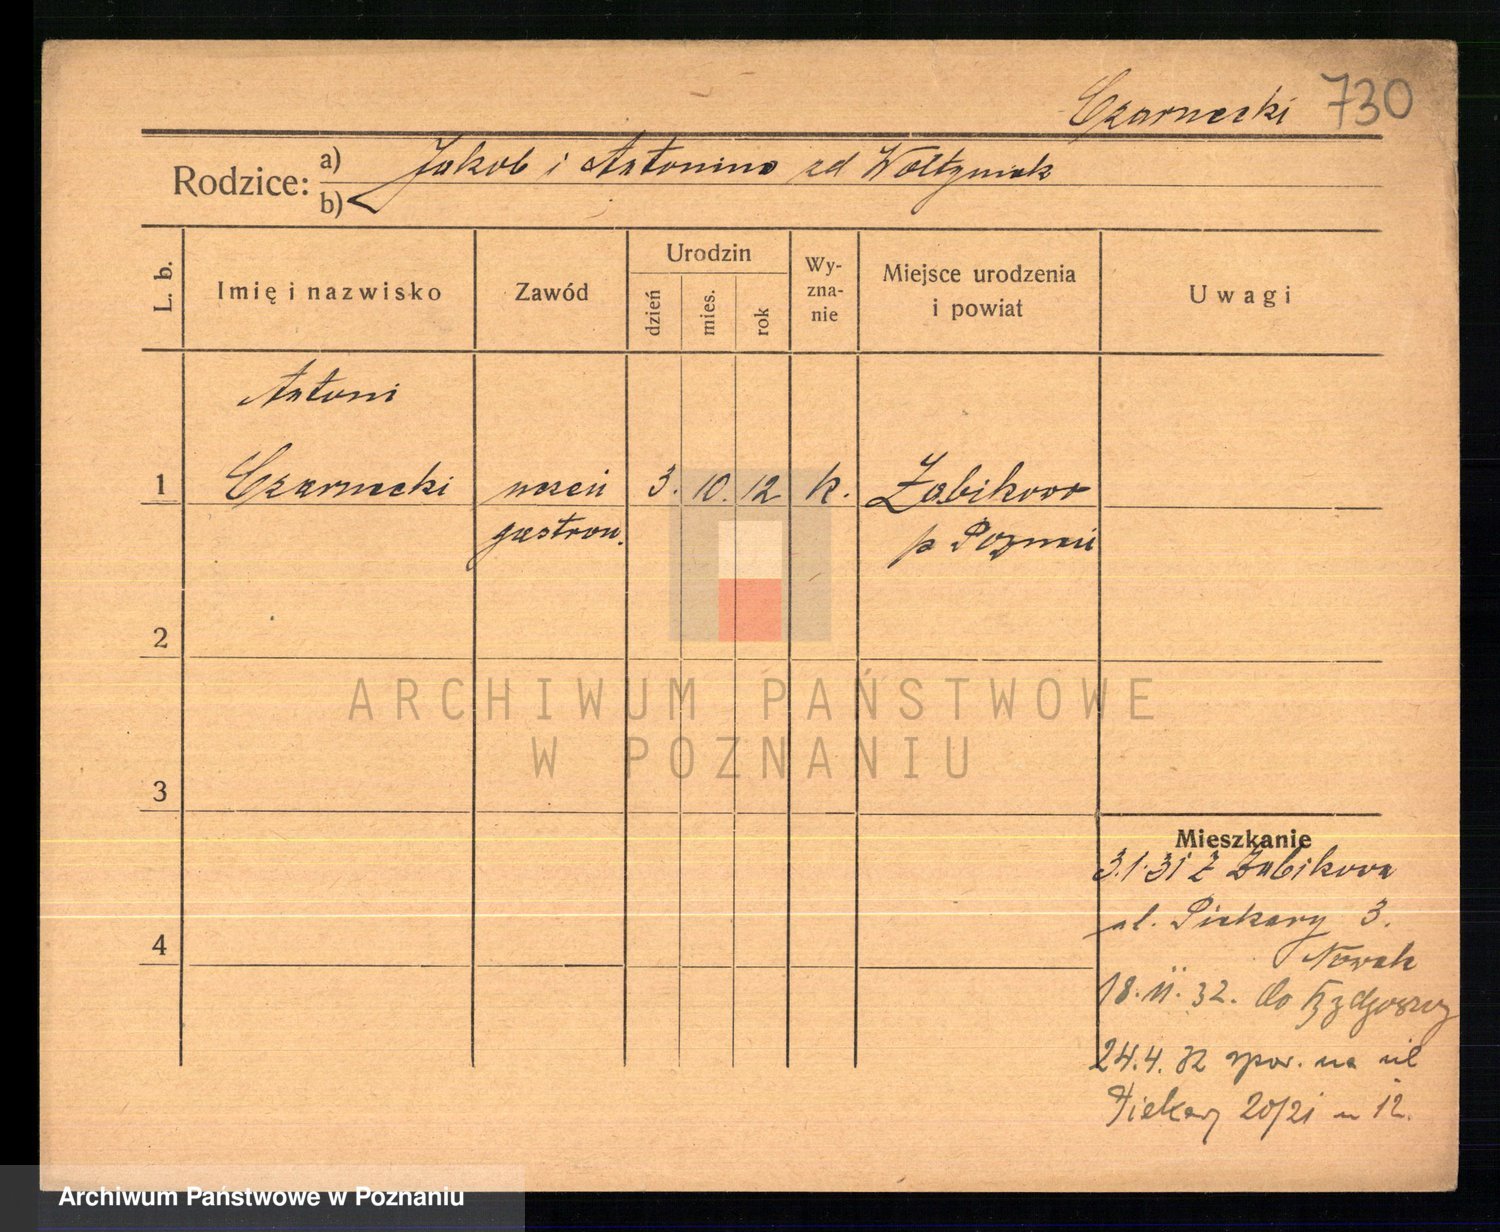 Czarnecki 730
Rodzice: a) Jakob i Antonina zd Wołtyniak
b)
L. b.
Imię i nazwisko
Zawód
Urodzin
dzień
mies.
rok
Wy-
zna-
nie
Miejsce urodzenia
i powiat
Uwagi
Antoni
1 Czarnecki uczeń 3. 10. 12 k. Żabikowo
gastron. p Poznań
2
ARCHIWUM PAŃSTWOWE
W POZNANIU
3
Mieszkanie
3.1.31 z Żabikowa
ul. Piekary 3.
Nowak
4
18. II. 32. do Bydgoszczy
24.4.32 spow. na ul
Piekary 20/21 u 12.
Archiwum Państwowe w Poznaniu